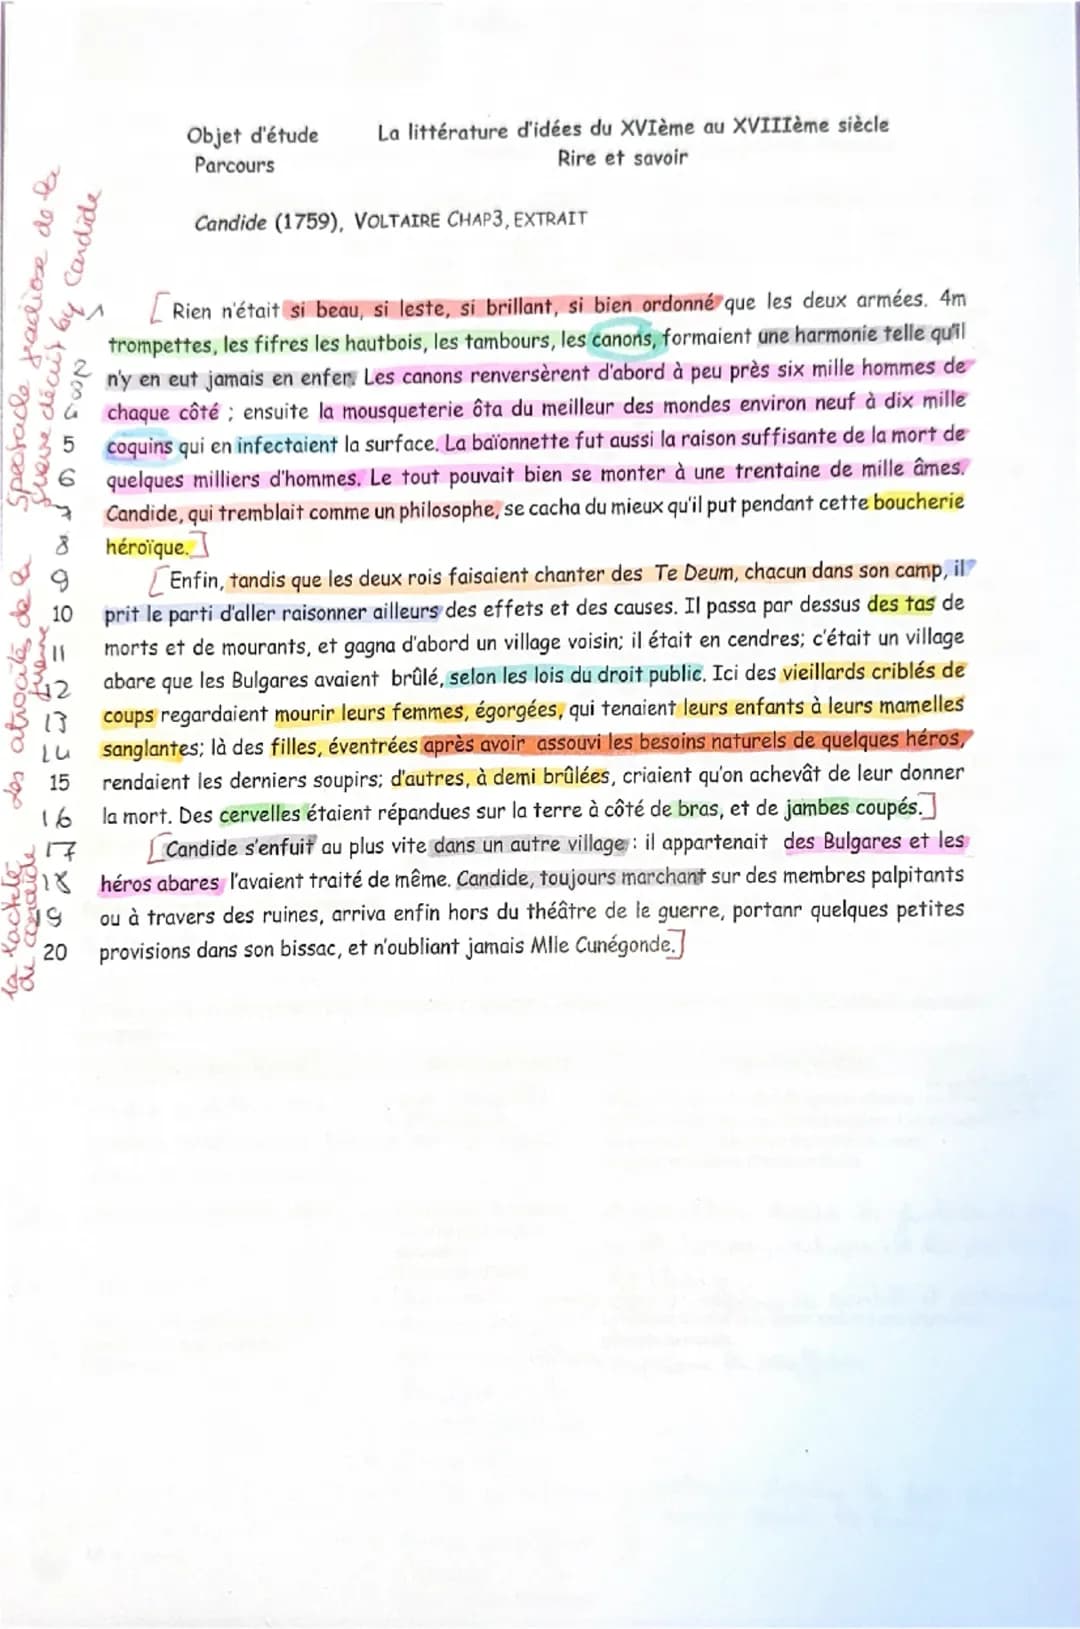 Objet d'étude La littérature d'idées du XVIème au XVIIIème siècle
Parcours Rire et savoir
Candide (1759), VOLTAIRE CHAP3, EXTRAIT
1 [Rien n'était si beau, si leste, si brillant, si bien ordonné que les deux armées. 4m
trompettes, les fifres les hautbois, les tambours, les canons, formaient une harmonie telle qu'il
2 n'y en eut jamais en enfer. Les canons renversèrent d'abord à peu près six mille hommes de
3
4 chaque côté ; ensuite la mousqueterie ôta du meilleur des mondes environ neuf à dix mille
5 coquins qui en infectaient la surface. La baïonnette fut aussi la raison suffisante de la mort de
6 quelques milliers d'hommes. Le tout pouvait bien se monter à une trentaine de mille âmes.
7 Candide, qui tremblait comme un philosophe, se cacha du mieux qu'il put pendant cette boucherie
8 héroïque.]
9 [Enfin, tandis que les deux rois faisaient chanter des Te Deum, chacun dans son camp, il
10 prit le parti d'aller raisonner ailleurs des effets et des causes. Il passa par dessus des tas de
11 morts et de mourants, et gagna d'abord un village voisin; il était en cendres; c'était un village
12 abare que les Bulgares avaient brûlé, selon les lois du droit public. Ici des vieillards criblés de
13 coups regardaient mourir leurs femmes, égorgées, qui tenaient leurs enfants à leurs mamelles
14 sanglantes; là des filles, éventrées après avoir assouvi les besoins naturels de quelques héros,
15 rendaient les derniers soupirs; d'autres, à demi brûlées, criaient qu'on achevât de leur donner
16 la mort. Des cervelles étaient répandues sur la terre à côté de bras, et de jambes coupés.]
17 [Candide s'enfuit au plus vite dans un autre village : il appartenait des Bulgares et les
18 héros abares l'avaient traité de même. Candide, toujours marchant sur des membres palpitants
19 ou à travers des ruines, arriva enfin hors du théâtre de le guerre, portanr quelques petites
20 provisions dans son bissac, et n'oubliant jamais Mlle Cunégonde.]
Spectacle de la
guerre décrit by Candide
Les atrocités de la
guerre
la lacheté
de candide